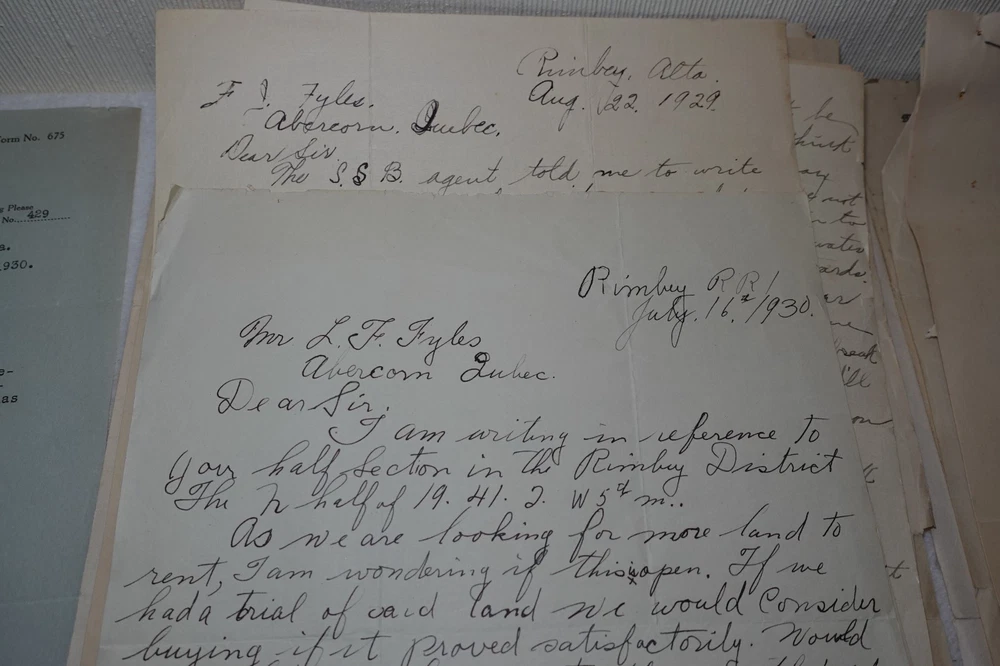 Form No. 675
g Please
No. 429
a.
930.
e-
-
as
Rimbey, Alta.
Aug. 22. 1929.
F J. Fyles.
Abercorn. Quebec.
Dear Sir.
The S.S B. agent told me to write
Rimbey R R 1
July. 16th/1930.
Mr L. F. Fyles
Abercorn Qubec.
Dear Sir.
I am writing in reference to
your half section in the Rimbey District
The N half of 19. 41. 2. W 5th m..
As we are looking for more land to
rent, I am wondering if this is open. If we
had a trial of said land we would Consider
buying if it proved satisfactorily. Would
be
not
to
on
t